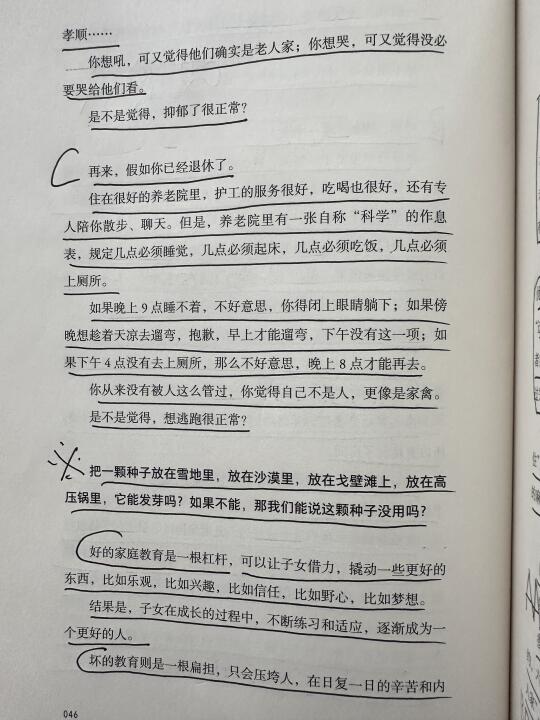 孝顺……
你想吼，可又觉得他们确实是老人家；你想哭，可又觉得没必
要哭给他们看。
是不是觉得，抑郁了很正常？
再来，假如你已经退休了。
住在很好的养老院里，护工的服务很好，吃喝也很好，还有专
人陪你散步、聊天。但是，养老院里有一张自称“科学”的作息
表，规定几点必须睡觉，几点必须起床，几点必须吃饭，几点必须
上厕所。
如果晚上9点睡不着，不好意思，你得闭上眼睛躺下；如果傍
晚想趁着天凉去遛弯，抱歉，早上才能遛弯，下午没有这一项；如
果下午4点没有去上厕所，那么不好意思，晚上8点才能再去。
你从来没有被人这么管过，你觉得自己不是人，更像是家禽。
是不是觉得，想逃跑很正常？
把一颗种子放在雪地里，放在沙漠里，放在戈壁滩上，放在高
压锅里，它能发芽吗？如果不能，那我们能说这颗种子没用吗？
好的家庭教育是一根杠杆，可以让子女借力，撬动一些更好的
东西，比如乐观，比如兴趣，比如信任，比如野心，比如梦想。
结果是，子女在成长的过程中，不断练习和适应，逐渐成为一
个更好的人。
坏的教育则是一根扁担，只会压垮人，在日复一日的辛苦和内
046